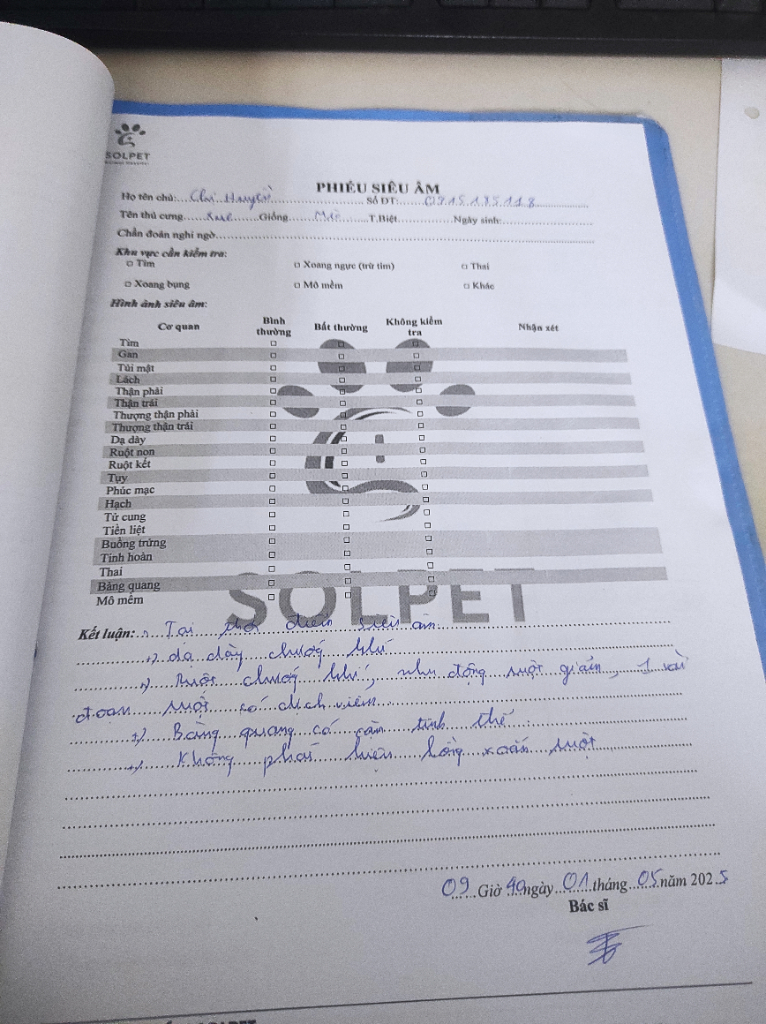 SOLPET
PHIẾU SIÊU ÂM
Họ tên chủ: Chị Huyền Số ĐT: 0915.135.118
Tên thú cưng Giống Mèo T.Biệt Ngày sinh:
Chẩn đoán nghi ngờ
Khu vực cần kiểm tra:
□ Tim □ Xoang ngực (trừ tim) □ Thai
□ Xoang bụng □ Mô mềm □ Khác
Hình ảnh siêu âm:
Cơ quan Bình thường Bất thường Không kiểm tra Nhận xét
Tim □ □ □
Gan □ □ □
Túi mật □ □ □
Lách □ □ □
Thận phải □ □ □
Thận trái □ □ □
Thượng thận phải □ □ □
Thượng thận trái □ □ □
Dạ dày □ □ □
Ruột non □ □ □
Ruột kết □ □ □
Tụy □ □ □
Phúc mạc □ □ □
Hạch □ □ □
Tử cung □ □ □
Tiền liệt □ □ □
Buồng trứng □ □ □
Tinh hoàn □ □ □
Thai □ □ □
Bàng quang □ □ □
Mô mềm □ □ □
SOLPET
Kết luận: Tại thời điểm siêu âm
+) Dạ dày chướng hơi
+) Ruột chướng hơi, nhu động ruột giảm, 1 vài
đoạn ruột có dịch viêm
+) Bàng quang có cặn tinh thể
+) Không phát hiện lồng xoắn ruột
09 Giờ 40 ngày 01 tháng 05 năm 2025
Bác sĩ